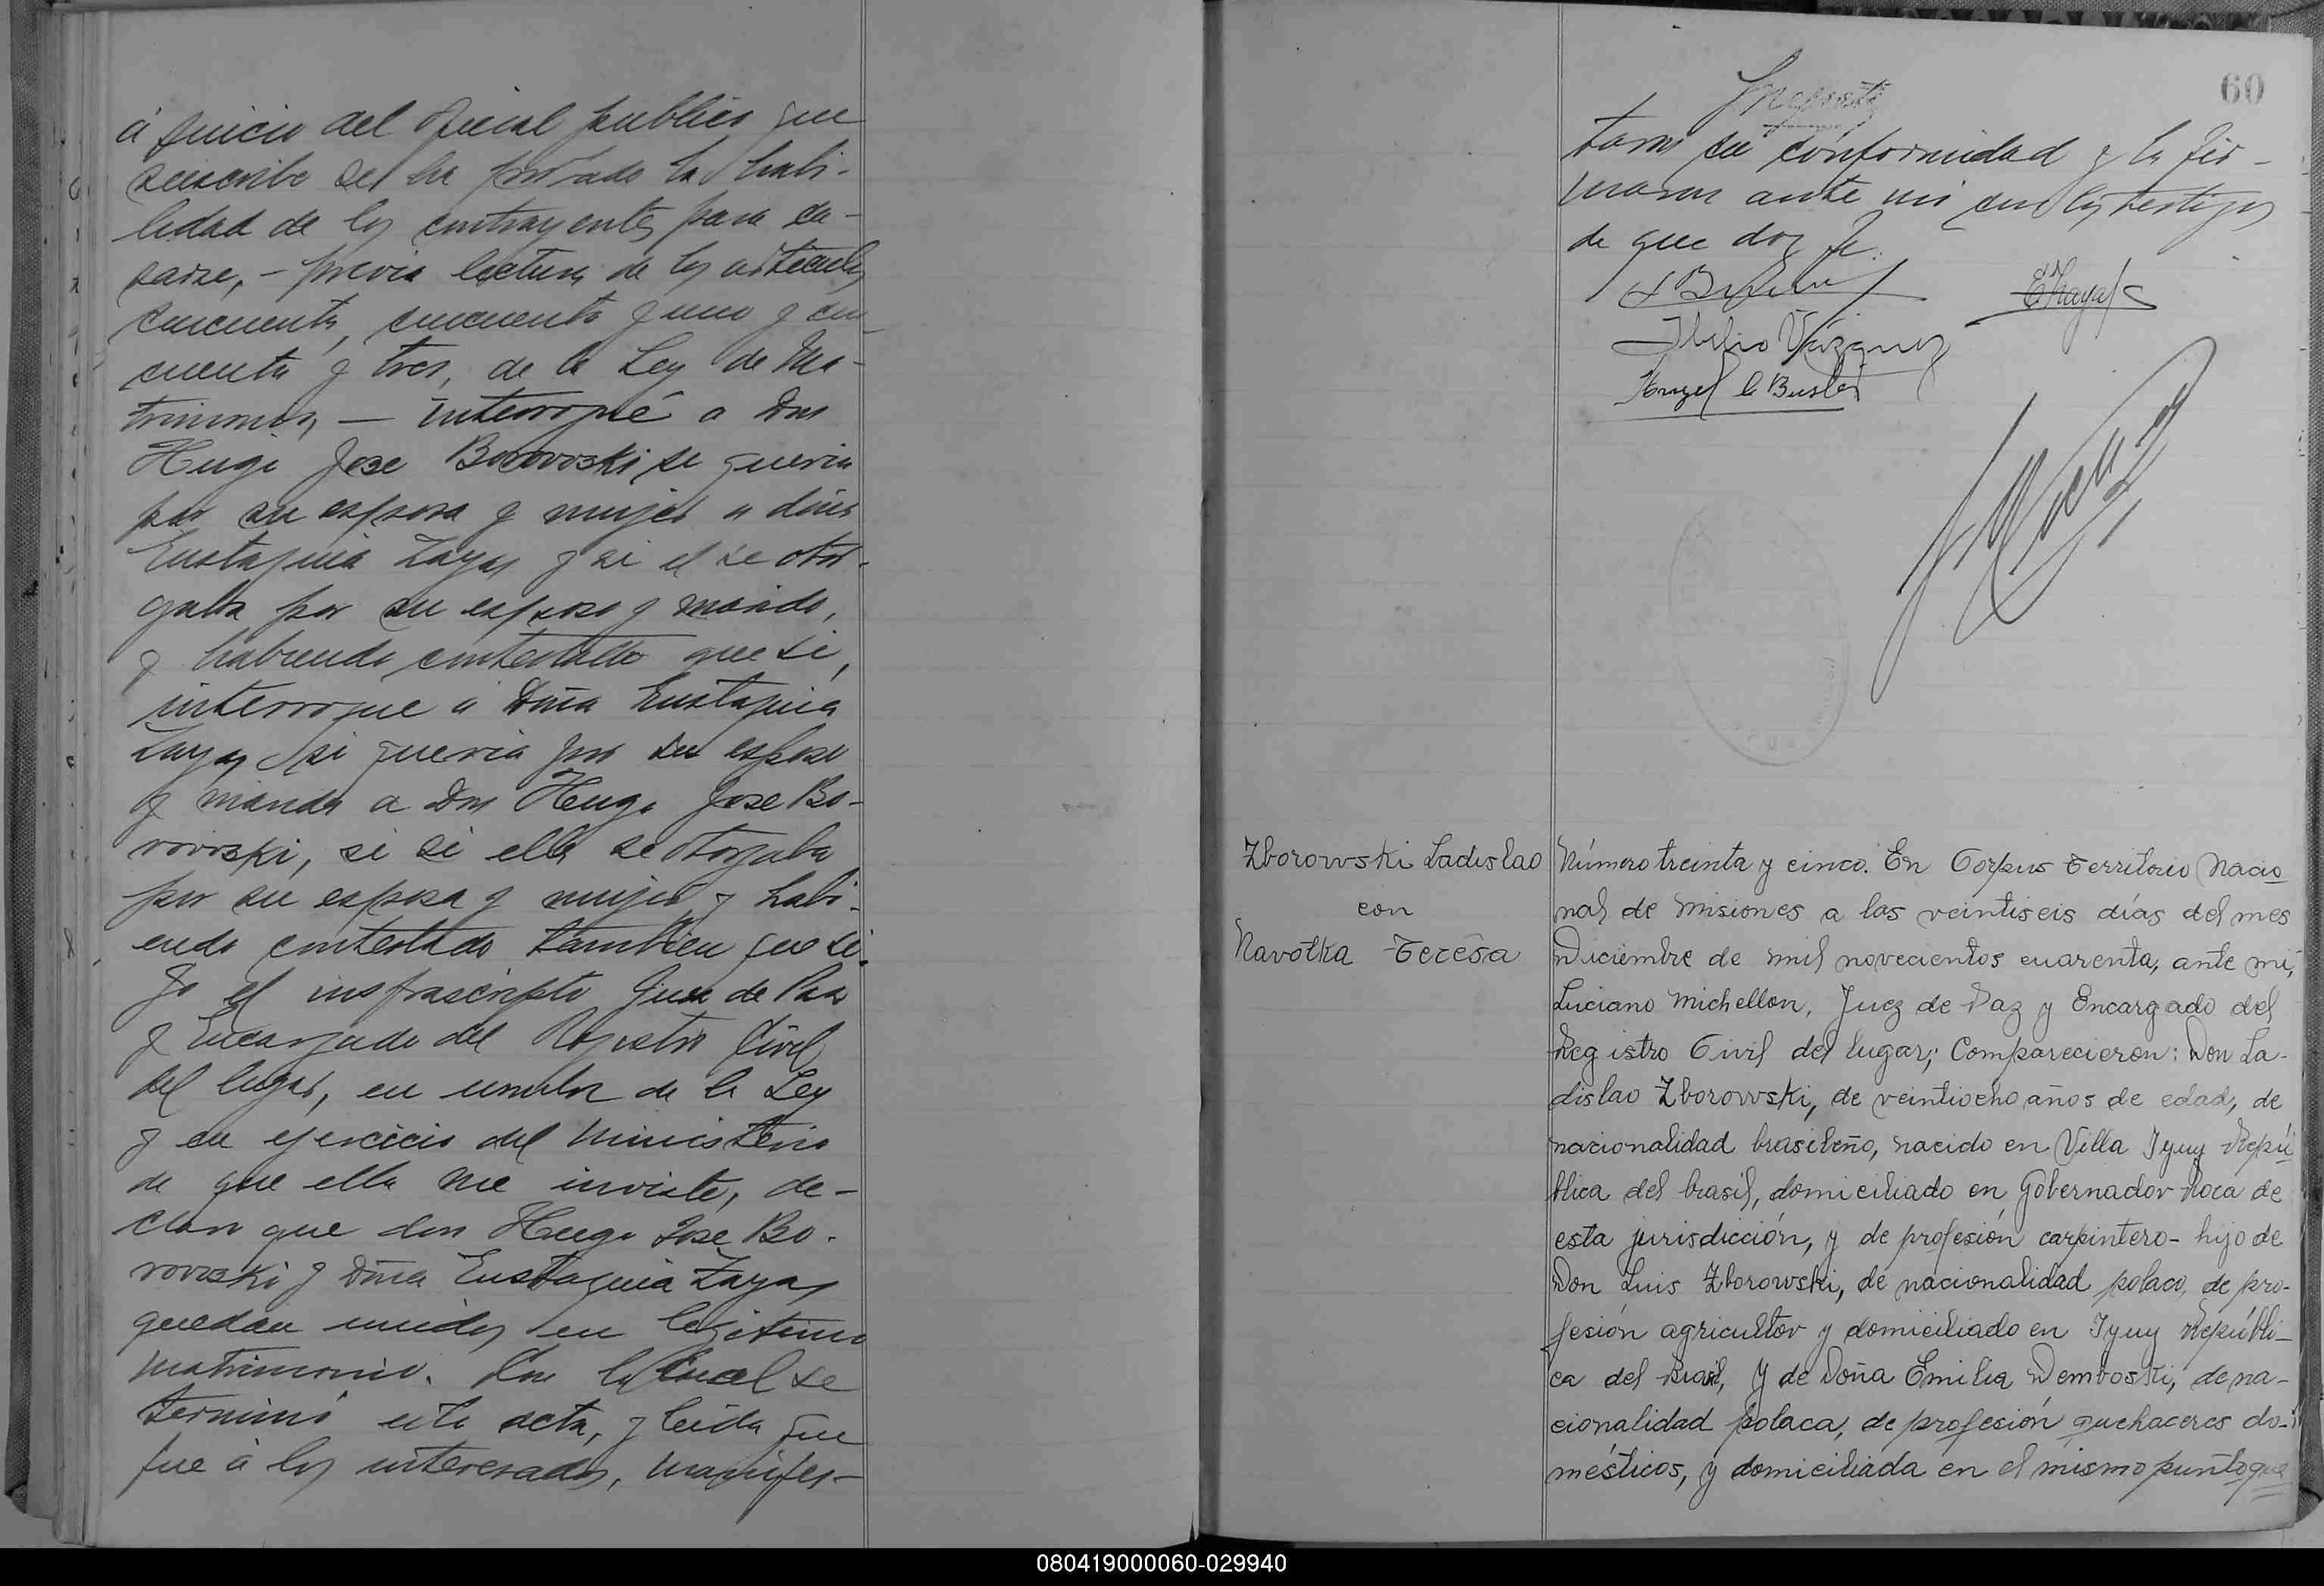 á juicio del oficial publico que
suscribe se ha probado la habi-
lidad de los contrayentes para ca-
sarse, - previa lectura de los articulos
cincuenta, cincuenta y uno y cin-
cuenta y tres, de la Ley de Ma-
trimonios, — interrogué a Don
Hugo Jose Borowski se queria
por su esposa y mujer a doña
Eustaquia Zayas y si el se otor-
gaba por su esposo y marido,
y habiendo contestado que si,
interrogue a Dña Eustaquia
Zayas si queria por su esposo
y marido a Don Hugo Jose Bo-
rowski, si si ella se otorgaba
por su esposa y mujer y habi-
endo contestado tambien que si.
Yo el infrascripto Juez de Paz
y Encargado del Registro Civil
del lugar, en nombre de la Ley
y en ejercicio del ministerio
de que ella me inviste, de-
claro que don Hugo Jose Bo-
rowski y Dña Eustaquia Zayas
quedan unidos en legitimo
matrimonio. Con lo cual se
terminó esta acta, y leida que
fue á los interesados, manifes-
60
taron su conformidad y la fir-
maron ante mi con los testigos
de que doy fe.
EZayas
Vázquez
Angel
Zborowski Ladislao
con
Navotka Teresa
Número treinta y cinco. En Corpus Territorio Nacio
nal de Misiones a los veintiseis días del mes
Diciembre de mil novecientos cuarenta, ante mí,
Luciano Michellon, Juez de Paz y Encargado del
Registro Civil del lugar; Comparecieron: Don La-
dislao Zborowski, de veintiocho años de edad, de
nacionalidad brasileño, nacido en Villa Iyuy Repú
blica del brasil, domiciliado en Gobernador Roca de
esta jurisdicción, y de profesión carpintero- hijo de
Don Luis Zborowski, de nacionalidad polaco, de pro-
fesión agricultor y domiciliado en Iyuy Repúbli-
ca del Brasil, Y de Doña Emilia Demboski, de na-
cionalidad polaca, de profesión quehaceres do-
mésticos, y domiciliada en el mismo punto que
080419000060-029940